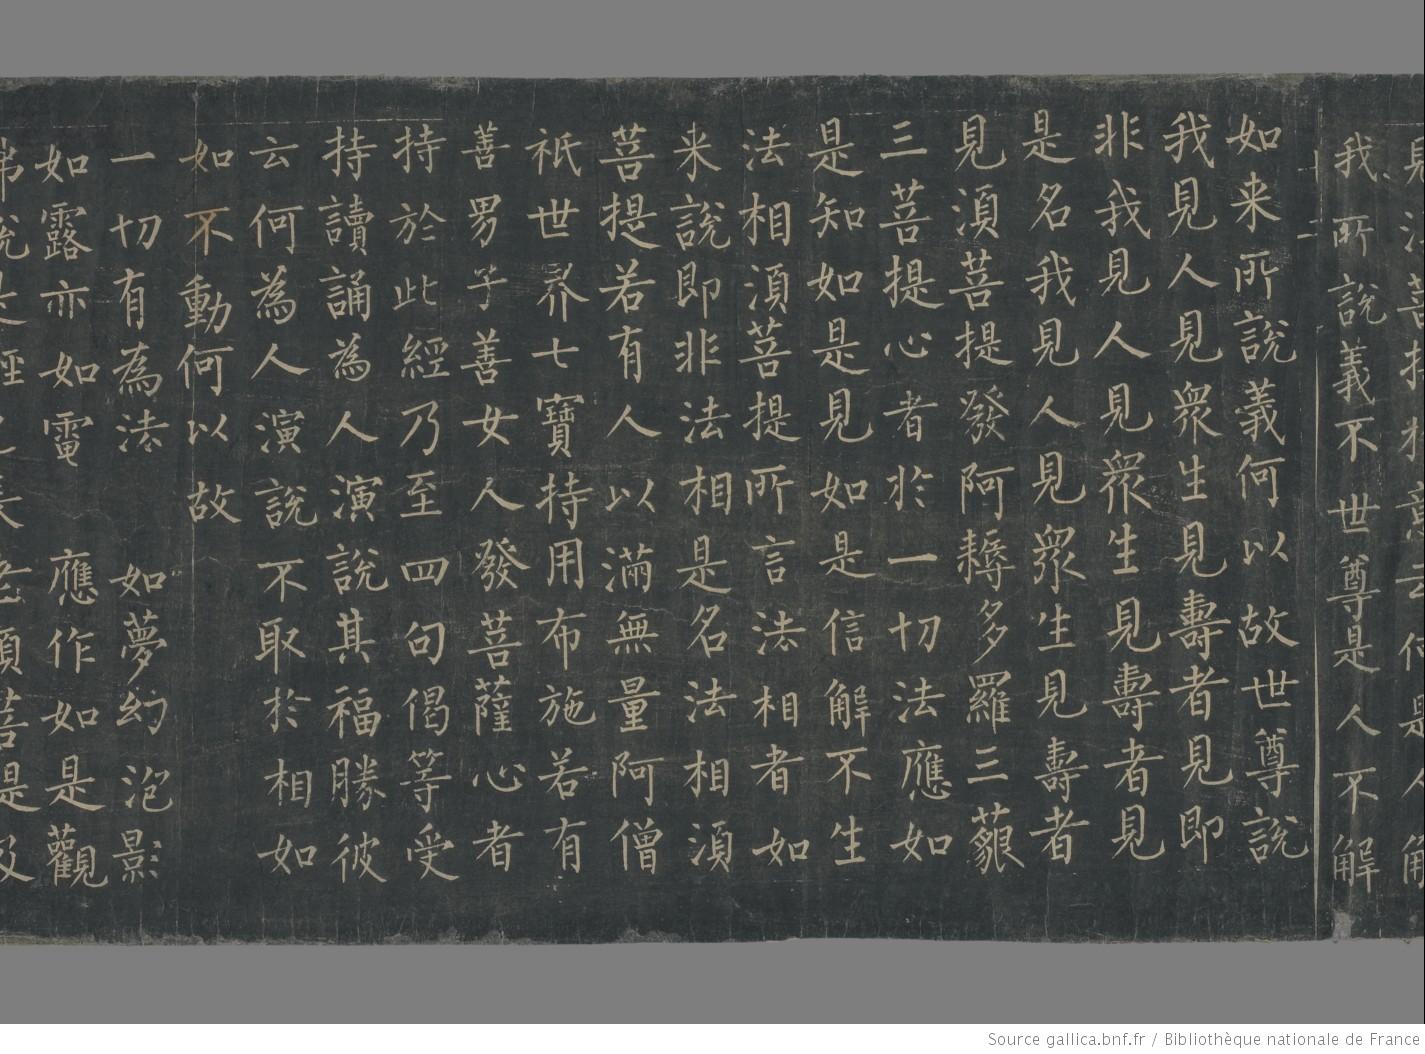 我所說義不世尊是人不解
如来所說義何以故世尊說
我見人見衆生見壽者見即
非我見人見衆生見壽者見
是名我見人見衆生見壽者
見湏菩提發阿耨多羅三藐
三菩提心者於一切法應如
是知如是見如是信解不生
法相湏菩提所言法相者如
来說即非法相是名法相湏
菩提若有人以滿無量阿僧
祇世界七寶持用布施若有
善男子善女人發菩薩心者
持於此經乃至四句偈等受
持讀誦為人演說其福勝彼
云何為人演說不取於相如
如不動何以故
一切有為法 如夢幻泡影
如露亦如電 應作如是觀
Source gallica.bnf.fr / Bibliothèque nationale de France